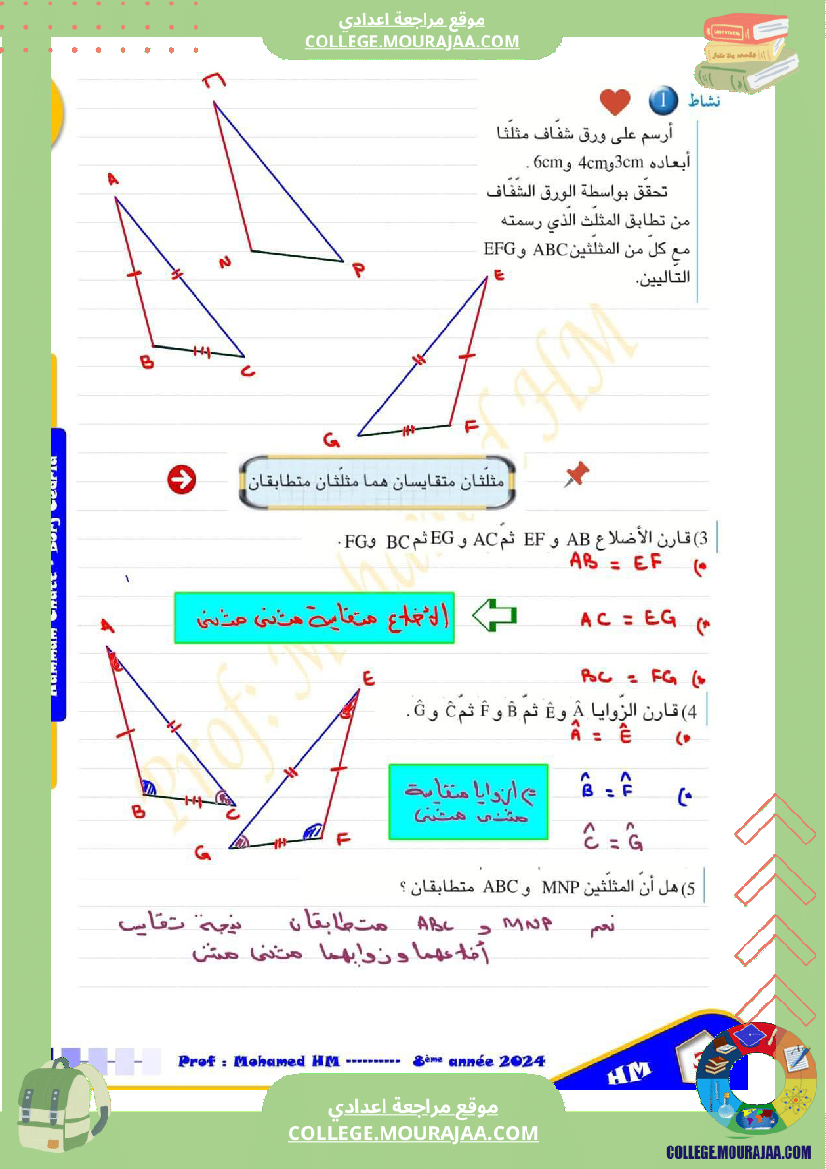 موقع مراجعة اعدادي
COLLEGE.MOURAJAA.COM
نشاط 1
أرسم على ورق شفّاف مثلّثا
أبعاده 3cm و 4cm و 6cm .
تحقّق بواسطة الورق الشّفّاف
من تطابق المثلّث الّذي رسمته
مع كلّ من المثلّثين ABC و EFG
التّاليين.
N
P
A
B
C
E
G
F
مثلّثان متقايسان هما مثلّثان متطابقان
3) قارن الأضلاع AB و EF ثمّ AC و EG ثم BC و FG .
AB = EF
الأضلاع متقايسة مثنى مثنى
AC = EG
BC = FG
4) قارن الزّوايا Â و Ê ثمّ B̂ و F̂ ثمّ Ĉ و Ĝ .
Â = Ê
A
E
B
C
G
F
الزوايا متقايسة
مثنى مثنى
B̂ = F̂
Ĉ = Ĝ
5) هل أنّ المثلّثين MNP و ABC متطابقان ؟
نعم MNP و ABC متطابقان نتيجة تقايس
أضلاعهما وزواياهما مثنى مثنى
Prof : Mohamed HM ---------- 8ème année 2024
HM
Prof: M
HM
موقع مراجعة اعدادي
COLLEGE.MOURAJAA.COM
COLLEGE.MOURAJAA.COM